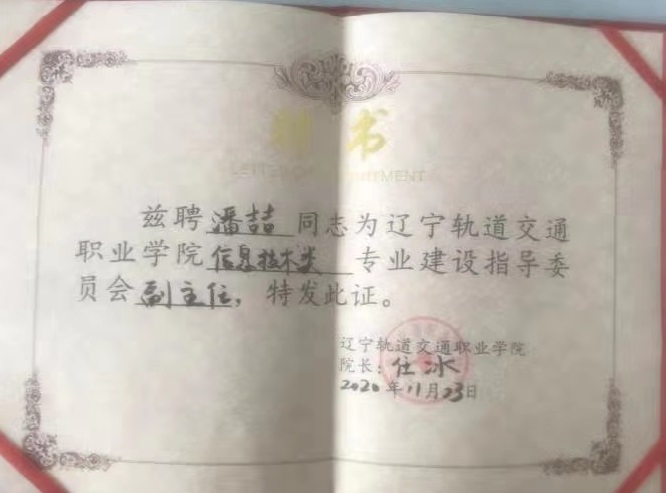 聘书
LETTER OF APPOINTMENT
兹聘潘喆同志为辽宁轨道交通
职业学院信息技术类专业建设指导委
员会副主任，特发此证。
辽宁轨道交通职业学院
院长：任冰
2020年11月23日